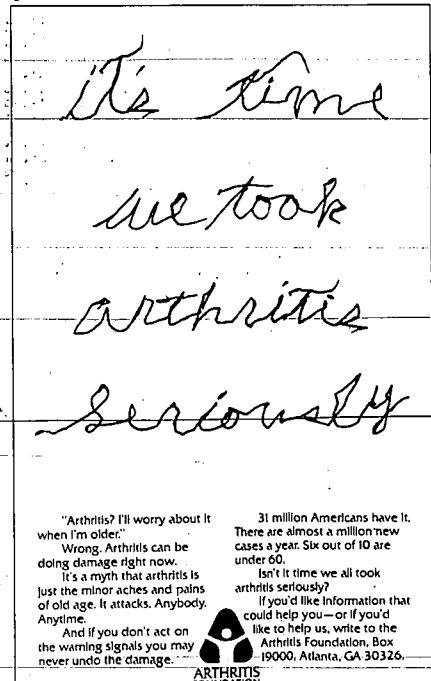 it's time
we took
arthritis
seriously
"Arthritis? I'll worry about it
when I'm older."
Wrong. Arthritis can be
doing damage right now.
It's a myth that arthritis is
just the minor aches and pains
of old age. It attacks. Anybody.
Anytime.
And if you don't act on
the warning signals you may
never undo the damage.
31 million Americans have it.
There are almost a million new
cases a year. Six out of 10 are
under 60.
Isn't it time we all took
arthritis seriously?
If you'd like information that
could help you—or if you'd
like to help us, write to the
Arthritis Foundation, Box
19000, Atlanta, GA 30326.
ARTHRITIS
FOUNDATION